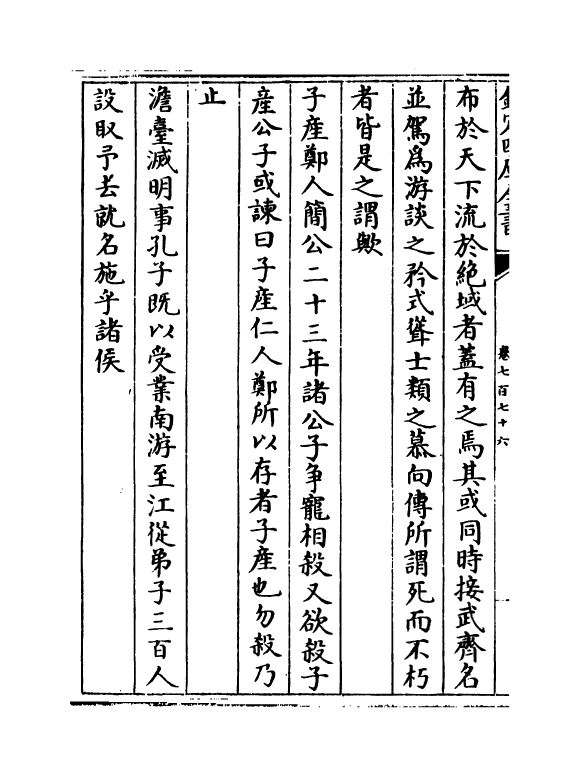 欽定四庫全書
卷七百七十六
布於天下流於絶域者蓋有之焉其或同時接武齊名
並駕為游談之矜式聳士類之慕向傳所謂死而不朽
者皆是之謂歟
子產鄭人簡公二十三年諸公子争寵相殺又欲殺子
産公子或諫曰子産仁人鄭所以存者子産也勿殺乃
止
澹臺滅明事孔子既以受業南游至江從弟子三百人
設取予去就名施乎諸侯